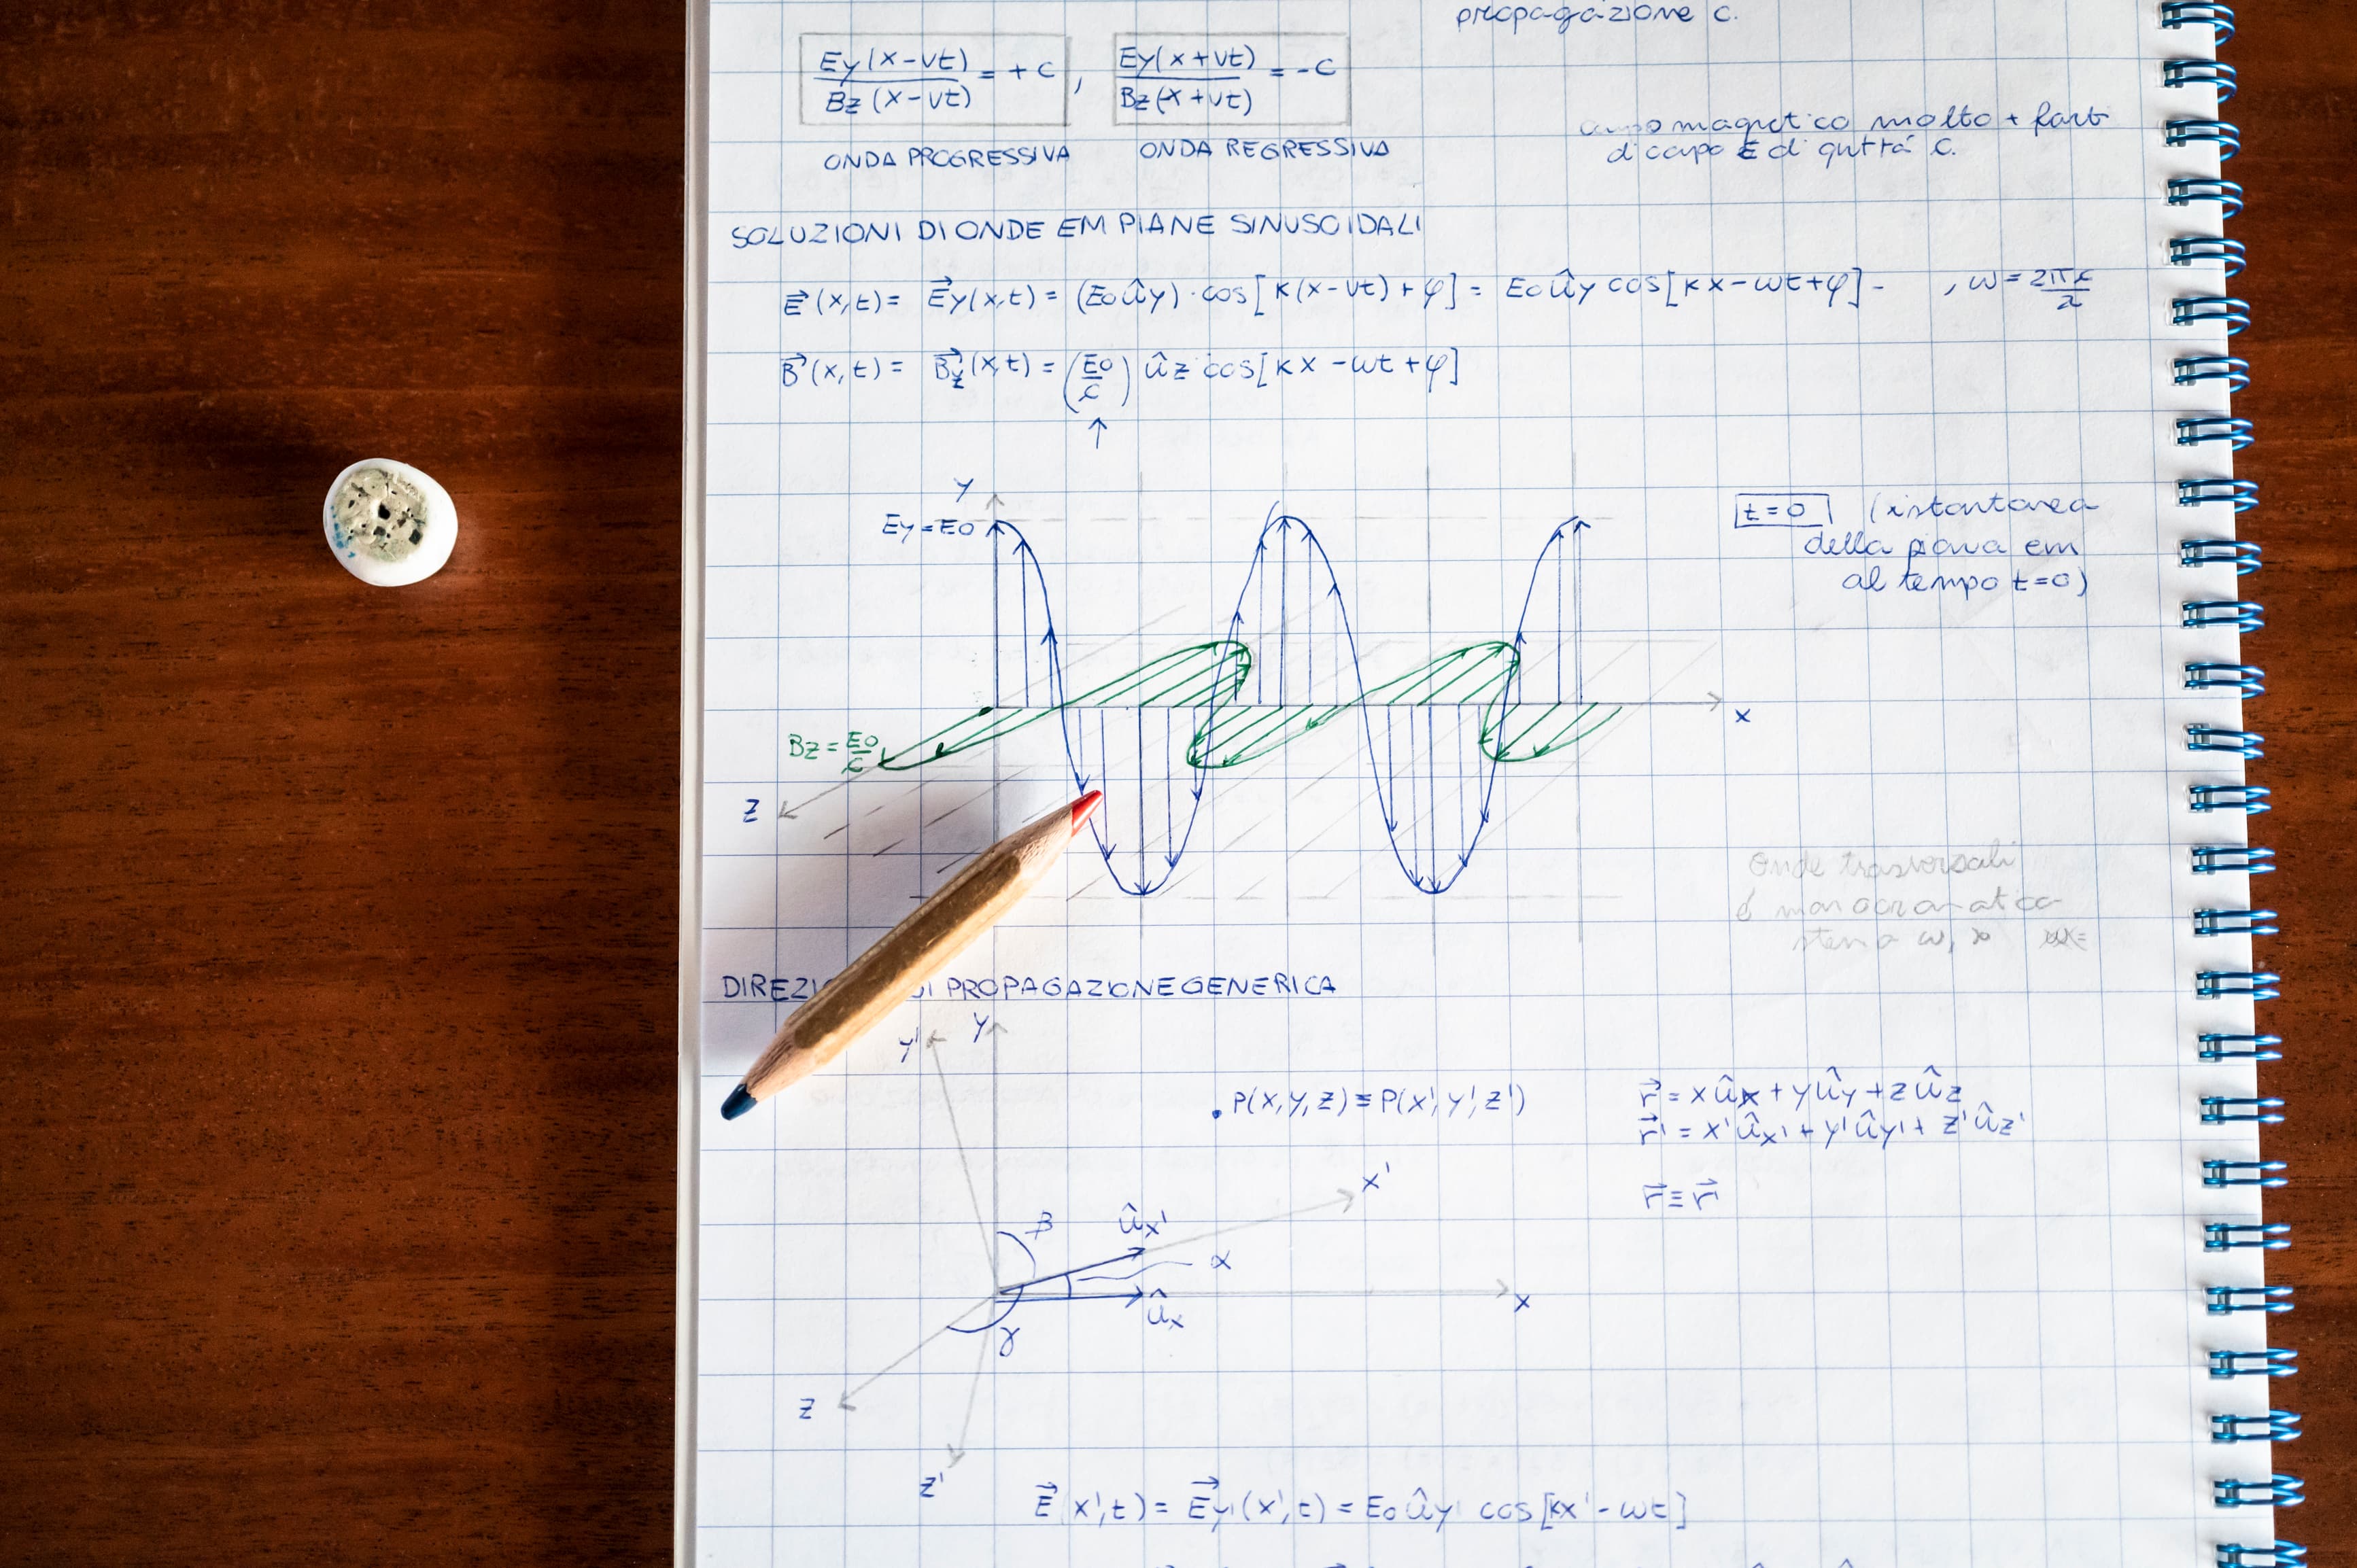 propagazione c.
Ey(x-vt)/Bz(x-vt) = +c , Ey(x+vt)/Bz(x+vt) = -c
ONDA PROGRESSIVA ONDA REGRESSIVA
magnetico molto + forte
di campo E di c.
SOLUZIONI DI ONDE EM PIANE SINUSOIDALI
E⃗(x,t) = E⃗y(x,t) = (E0ûy)·cos[k(x-vt)+φ] = E0ûy cos[kx-ωt+φ]- , ω = 2πc/λ
B⃗(x,t) = B⃗z(x,t) = (E0/c) ûz cos[kx-ωt+φ]
↑
y
Ey=E0
t=0 (istantanea
della piana em
al tempo t=0)
x
Bz=E0/c
z
Onde trasversali
ω, λ
DIREZI DI PROPAGAZIONE GENERICA
y' y
P(x,y,z)≡P(x',y',z')
r⃗ = xûx + yûy + zûz
r⃗' = x'ûx' + y'ûy' + z'ûz'
r⃗≡r⃗'
x'
β ûx'
α
ûx x
γ
z
z'
E⃗(x',t) = E⃗y'(x',t) = E0ûy' cos[kx'-ωt]